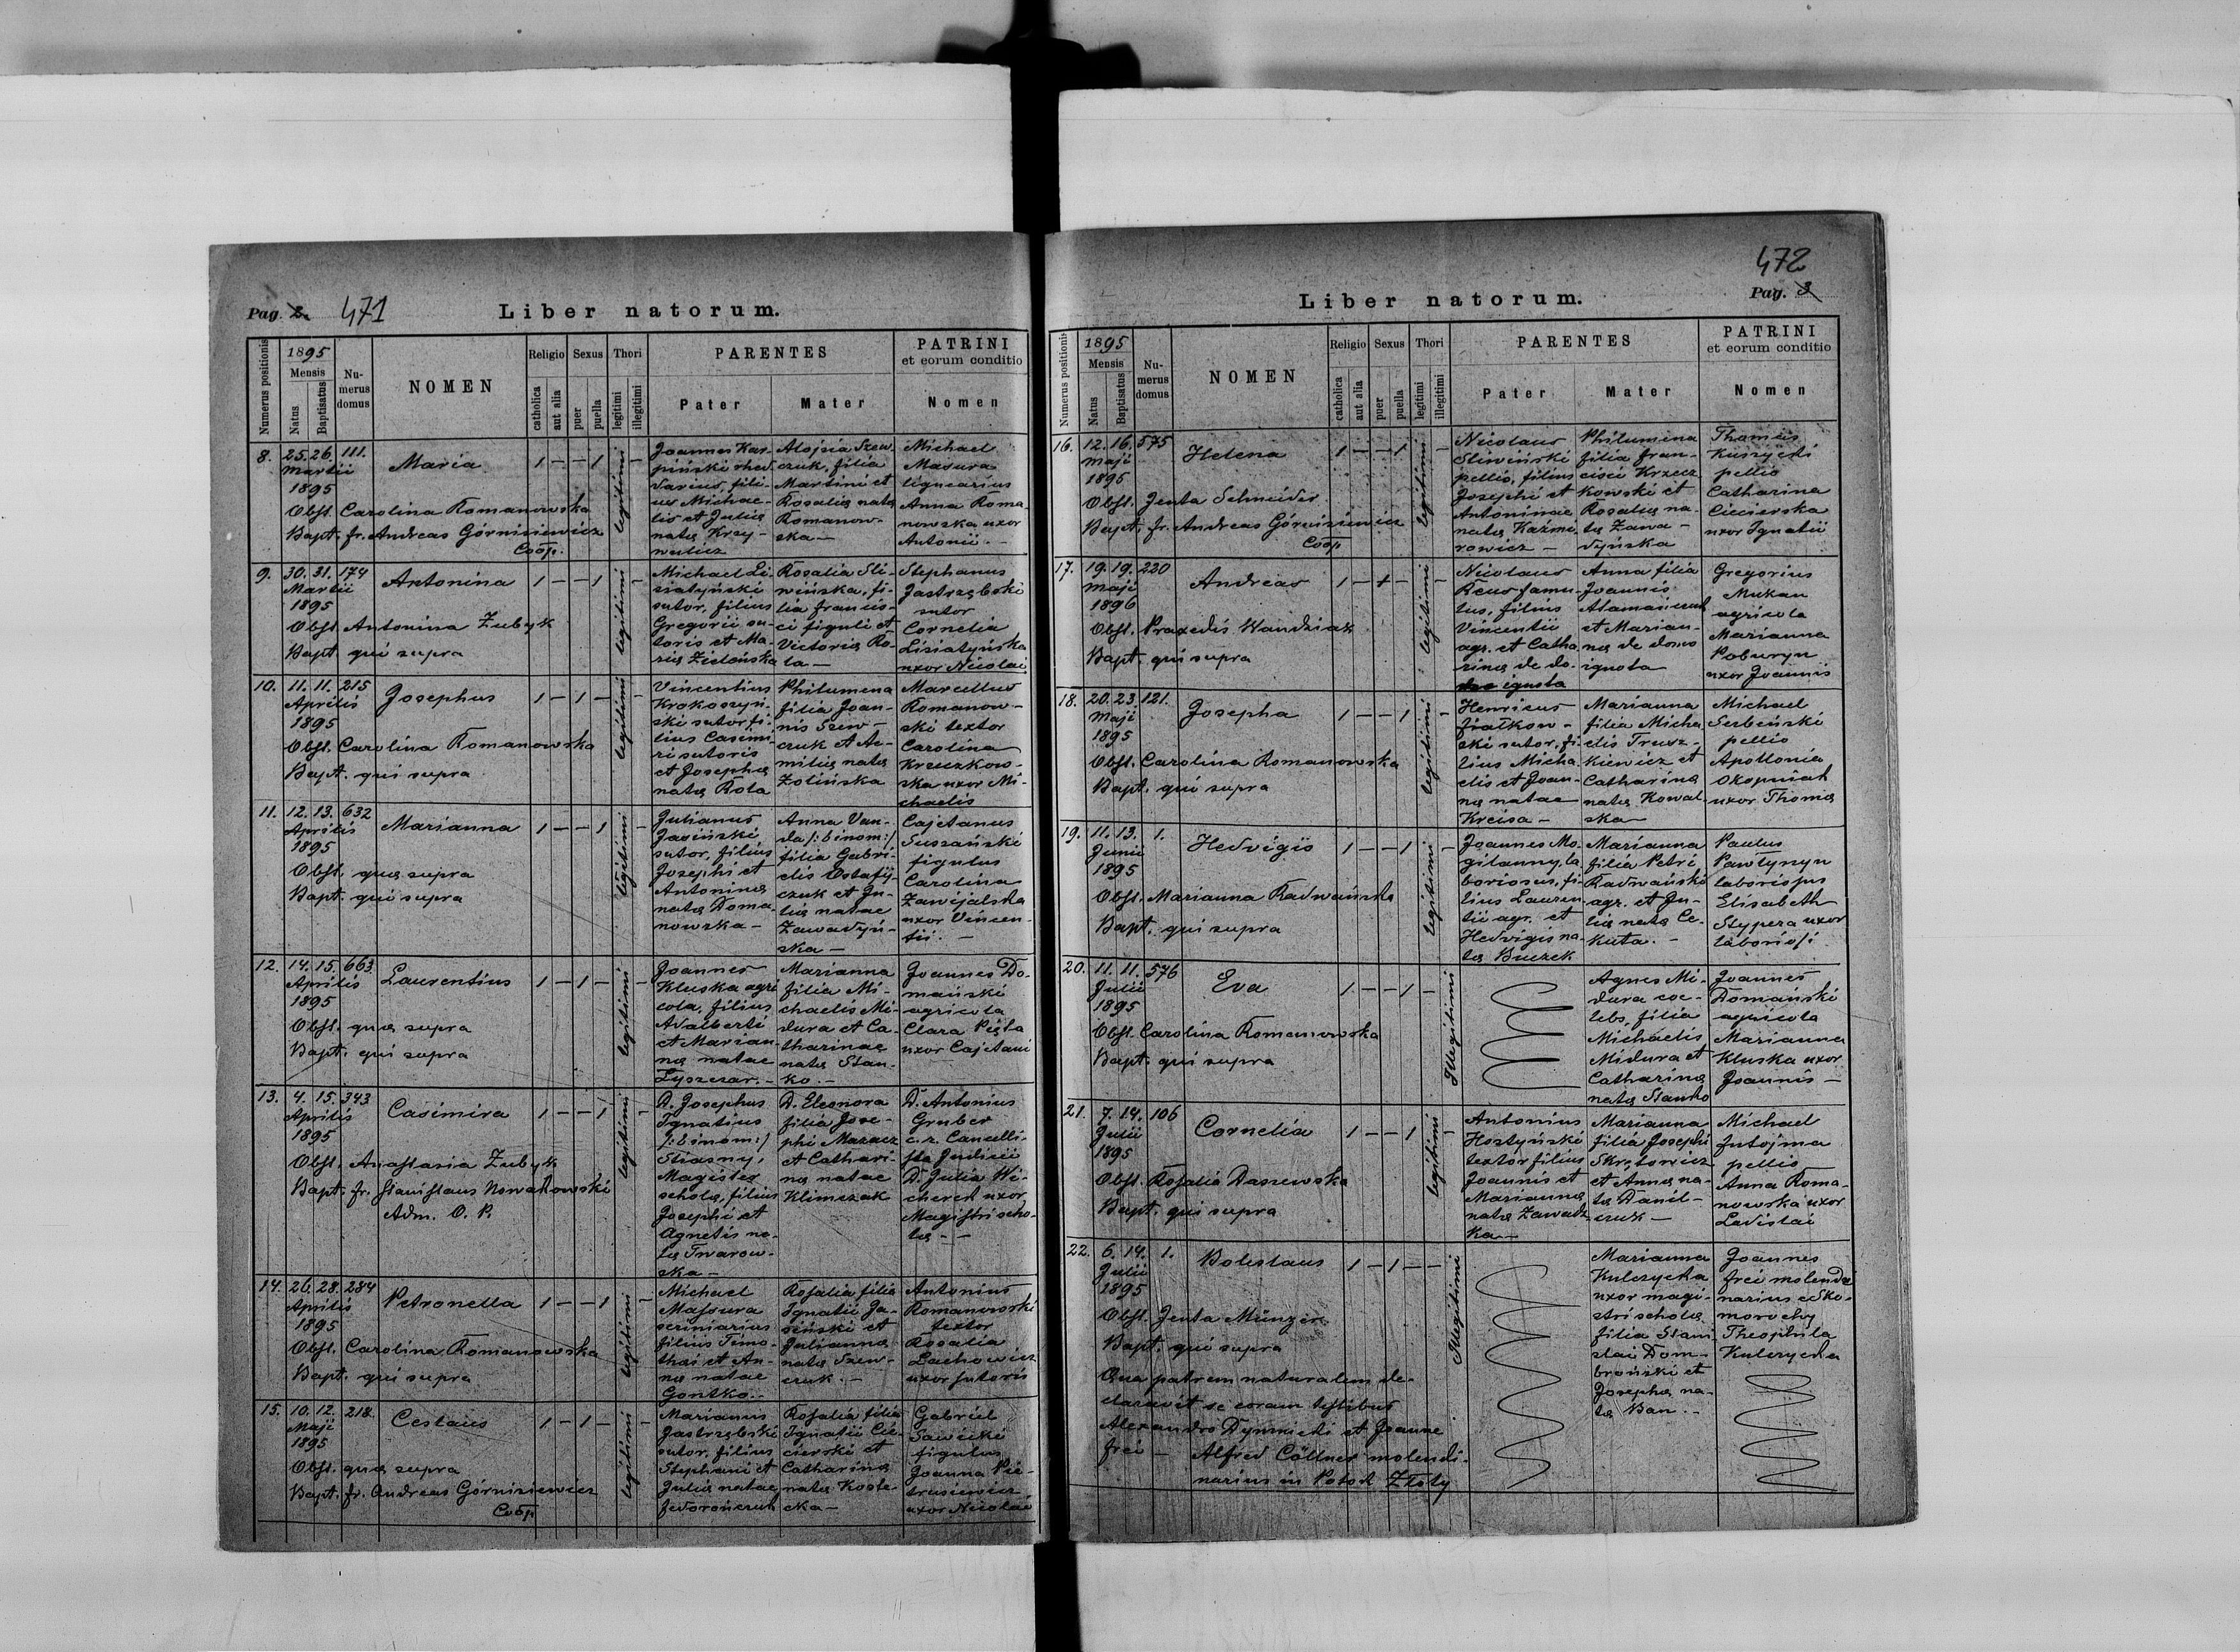 Pag. 2. 471
Liber natorum.
Numerus positionis
1895
Mensis
Natus
Baptisatus
Nu-
merus
domus
NOMEN
Religio
catholica
aut alia
Sexus
puer
puella
Thori
legitimi
illegitimi
PARENTES
Pater
Mater
PATRINI
et eorum conditio
Nomen
8. 25. 26. 111.
Martii
1895
Maria
1 — — 1 legitimi —
Obst. Carolina Romanowska
Bapt. fr. Andreas Górnisiewicz
Coop.
Joannes Kar-
piński rhed
darius, fili-
us Michae-
lis et Julia
nata Krzy-
wulicz
Alojsia Szew
czuk, filia
Martini et
Rosalia nata
Romanow-
ska —
Michael
Masura
lignearius
Anna Roma
nowska uxor
Antonii. —
9. 30. 31. 174
Martii
1895
Antonina
1 — — 1 legitimi —
Obst. Antonina Zubyk
Bapt. qui supra
Michael Li-
siatyński
sutor, filius
Gregorii su-
toris et Ma-
ria Zielońska
Rosalia Sli-
wińska, fi-
lia francis-
ci figuli et
Victoria Ro-
la —
Stephanus
Jastrzębski
sutor
Cornelia
Lisiatyńska
uxor Nicolai
10. 11. 11. 215
Aprilis
1895
Josephus
1 — 1 — legitimi —
Obst. Carolina Romanowska
Bapt. qui supra
Vincentius
Krokoszyń-
ski sutor fi-
lius Casimi
ri sutoris
et Josepha
nata Rola
Philumena
filia Joan-
nis Szew-
czuk et Ae-
milia nata
Zolińska
Marcellus
Romanow-
ski textor
Carolina
Kreuzkow-
ska uxor Mi-
chaelis
11. 12. 13. 632
Aprilis
1895
Marianna
1 — — 1 legitimi —
Obst. qua supra
Bapt. qui supra
Julianus
Jasiński
sutor, filius
Josephi et
Antonina
nata Roma-
nowska —
Anna Van-
da /:binom:/
filia Gabri-
elis Ostafij-
czuk et Ju-
lia natae
Zawadyń-
ska —
Cajetanus
Suszański
figulus
Carolina
Zawijalska
uxor Vincen-
tii. —
12. 14. 15. 663.
Aprilis
1895
Laurentius
1 — 1 — legitimi —
Obst. qua supra
Bapt. qui supra
Joannes
Kluska agri
cola, filius
Adalberti
et Marian-
na natae
Lyszczar. —
Marianna
filia Mi-
chaelis Mi-
dura et Ca-
tharinae
nata Stan-
ko. —
Joannes Do-
mański
agricola
Clara Pięta
uxor Cajetani
13. 4. 15. 343
Aprilis
1895
Casimira
1 — — 1 legitimi —
Obst. Anastasia Zubyk
Bapt. fr. Stanislaus Nowakowski
Adm. O. P.
D. Josephus
Ignatius
/:binom:/
Stiasny,
Magister
schola, filius
Josephi et
Agnetis na-
ta Twarow-
ska —
D. Eleonora
filia Jose-
phi Mazacz
et Cathari-
na natae
Klimczak
D. Antonius
Gruber
c. r. Cancelli-
sta Judicii
D. Julia Wi-
cherek uxor
Magistri scho-
la — —
14. 26. 28. 284
Aprilis
1895
Petronella
1 — — 1 legitimi —
Obst. Carolina Romanowska
Bapt. qui supra
Michael
Massura
scriniarius
filius Timo-
thai et An-
na natae
Gontko. —
Rosalia filia
Ignatii Ja-
siński et
Julianna
nata Szew-
czuk. —
Antonius
Romanowski
textor
Rosalia
Lachowicz
uxor sutoris
15. 10. 12. 218.
Maji
1895
Ceslaus
1 — 1 — legitimi —
Obst. qua supra
Bapt. fr. Andreas Górnisiewicz
Coop.
Marianus
Jastrzębski
sutor, filius
Stephani et
Julia natae
fedorończuk
Rosalia filia
Ignatii Cie-
cierski et
Catharina
nata Koste
cka —
Gabriel
Sawicki
figulus
Joanna Pie-
trusiewicz
uxor Nicolai
472
Pag. 3
Liber natorum.
Numerus positionis
1895
Mensis
Natus
Baptisatus
Nu-
merus
domus
NOMEN
Religio
catholica
aut alia
Sexus
puer
puella
Thori
legitimi
illegitimi
PARENTES
Pater
Mater
PATRINI
et eorum conditio
Nomen
16. 12. 16. 575
Maji
1895
Helena
1 — — 1 legitimi —
Obst. Jenta Schneider
Bapt. fr. Andreas Górnisiewicz
Coop
Nicolaus
Sliwiński
pellio, filius
Josephi et
Antoninae
nata Kaźmi-
rowicz —
Philumina
filia fran-
cisci Krzecz
kowski et
Rosalia na-
ta Zawa-
dyńska
Thomas
Kuszycki
pellio
Catharina
Ciecierska
uxor Ignatii
17. 19. 19. 220
Maji
1896
Andreas
1 — 1 — legitimi —
Obst. Praxedis Wandziak
Bapt. qui supra
Nicolaus
Reus famu-
lus, filius
Vincentii
agr. et Catha
rina de do-
ignota
Anna filia
Joannis
Atamańczuk
et Marian-
na de domo
ignota
Gregorius
Mukan
agricola
Marianna
Poburyn
uxor Joannis
18. 20. 23. 121.
Maji
1895
Josepha
1 — — 1 legitimi —
Obst. Carolina Romanowska
Bapt. qui supra
Henricus
fiałkow-
ski sutor, fi-
lius Micha-
elis et Joan-
na natae
Kreisa —
Marianna
filia Micha
elis Trusz-
kiewicz et
Catharina
nata Kowal-
ska —
Michael
Serbeński
pellio
Apollonia
Okopniak
uxor Thoma
19. 11. 13. 1.
Junii
1895
Hedvigis
1 — — 1 legitimi —
Obst. Marianna Radwańska
Bapt. qui supra
Joannes Mo-
gilanny, la
boriosus, fi-
lius Lauren
tii agr. et
Hedvigis na-
ta Buczek
Marianna
filia Petri
Radwański
agr. et Ju-
lia nata Ce-
kuta. —
Paulus
Pawlynyn
laboriosus
Elisabeth
Stypera uxor
laboriosi
20. 11. 11. 576
Julii
1895
Eva
1 — — 1 — Illegitimi
Obst. Carolina Romanowska
Bapt. qui supra
Agnes Mi-
dura coe-
lebs, filia
Michaelis
Midura et
Catharina
nata Stanko
Joannes
Domański
agricola
Marianna
Kluska uxor
Joannis —
21. 7. 14. 106
Julii
1895
Cornelia
1 — — 1 legitimi —
Obst. Rosalia Daszewska
Bapt. qui supra
Antonius
Hostyński
textor filius
Joannis et
Marianna
nata Zawadz
ka —
Marianna
filia Josephi
Skrętowicz
et Anna na-
ta Danil-
czuk —
Michael
Jutojma
pellio
Anna Roma-
nowska uxor
Ladislai
22. 6. 14. 1.
Julii
1895
Boleslaus
1 — 1 — — Illegitimi
Obst. Jenta Münzer
Bapt. qui supra
Qua patrem naturalem de-
claravit se coram testibus
Alexandro Dymnicki et Joanne
frei — Alfred Cöllner molendi-
narius in Potok Złoty
Marianna
Kulczycka
uxor magi-
stri schola
filia Stani
slai Dom-
broński et
Josepha na-
ta Ban. —
Joannes
frei molendi
narius e Sko-
morochy
Theophila
Kulczycka